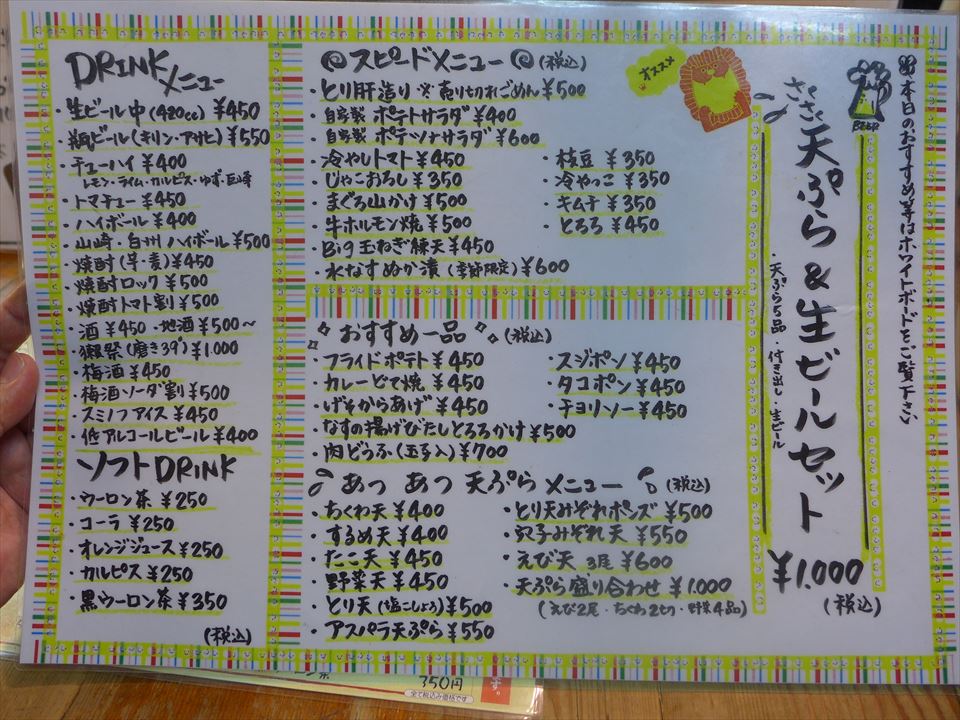 DRINKメニュー
・生ビール中(420cc) ¥450
・瓶ビール(キリン・アサヒ) ¥550
・チューハイ ¥400
レモン・ライム・カルピス・ゆず・巨峰
・トマチュー ¥450
・ハイボール ¥400
・山崎・白州 ハイボール ¥500
・焼酎(芋・麦) ¥450
・焼酎ロック ¥500
・焼酎トマト割 ¥500
・酒 ¥450 ・地酒 ¥500〜
・獺祭(磨き39) ¥1.000
・梅酒 ¥450
・梅酒ソーダ割 ¥500
・スミノフアイス ¥450
・低アルコールビール ¥400
ソフトDRINK
・ウーロン茶 ¥250
・コーラ ¥250
・オレンジジュース ¥250
・カルピス ¥250
・黒ウーロン茶 ¥350
(税込)
スピードメニュー (税込)
・とり肝造り ※売り切れごめん ¥500
・自家製 ポテトサラダ ¥400
・自家製 ポテツナサラダ ¥600
・冷やしトマト ¥450
・じゃこおろし ¥350
・まぐろ山かけ ¥500
・牛ホルモン焼 ¥500
・Big玉ねぎ練天 ¥450
・水なすぬか漬(季節限定) ¥600
・枝豆 ¥350
・冷やっこ ¥350
・キムチ ¥350
・とろろ ¥450
おすすめ一品 (税込)
・フライドポテト ¥450
・カレーどて焼 ¥450
・げそからあげ ¥450
・なすの揚げびたしとろろかけ ¥500
・肉どうふ(玉子入) ¥700
・スジポン ¥450
・タコポン ¥450
・チョリソー ¥450
あつ あつ 天ぷら メニュー (税込)
・ちくわ天 ¥400
・するめ天 ¥400
・たこ天 ¥450
・野菜天 ¥450
・とり天(塩こしょう) ¥500
・アスパラ天ぷら ¥550
・とり天みぞれポンズ ¥500
・穴子みぞれ天 ¥550
・えび天 3尾 ¥600
・天ぷら盛り合わせ ¥1.000
(えび2尾・ちくわ2切・野菜4品)
オススメ
BEER
本日のおすすめ等はホワイトボードをご覧下さい
さくさく 天ぷら&生ビールセット
・天ぷら5品・付き出し・生ビール
¥1.000
(税込)
350円
全て税込み価格です
す。